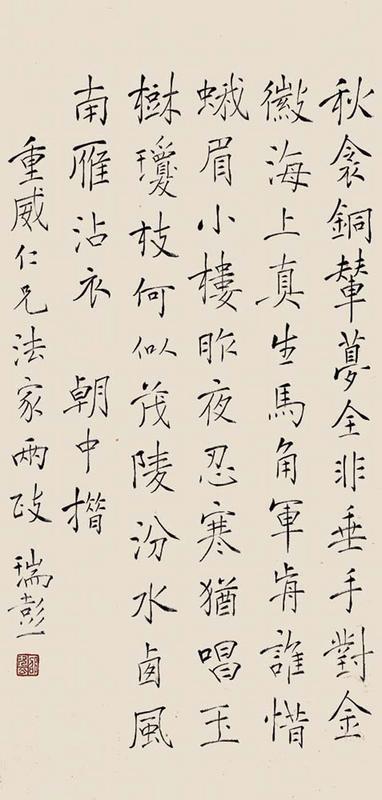 秋衾銅輦夢全非垂手對金
徽海上真生馬角軍歬誰惜
蛾眉小樓昨夜忍寒猶唱玉
樹瓊枝何似茂陵汾水卥風
南雁沾衣 朝中措
重威仁兄法家兩政 瑞彭